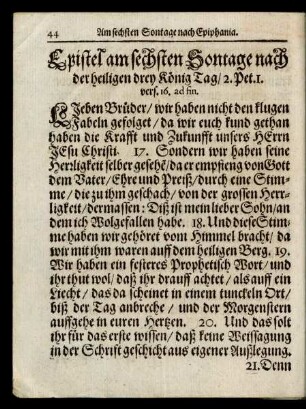 44 Am sechsten Sontage nach Epiphania.
Epistel am sechsten Sontage nach
der heiligen drey König Tag/ 2. Pet. 1.
vers. 16. ad fin.
LJeben Brüder/ wir haben nicht den klugen
Fabeln gefolget/ da wir euch kund gethan
haben die Krafft und Zukunfft unsers HErrn
JEsu Christi. 17. Sondern wir haben seine
Herrligkeit selber gesehē/ da er empfieng von Gott
dem Vater/ Ehre und Preiß/ durch eine Stim-
me/ die zu ihm geschach/ von der grossen Herr-
ligkeit/ dermassen: Diß ist mein lieber Sohn/ an
dem ich Wolgefallen habe. 18. Und diese Stim-
me haben wir gehöret vom Himmel bracht/ da
wir mit ihm waren auff dem heiligen Berg. 19.
Wir haben ein festeres Prophetisch Wort/ und
ihr thut wol/ daß ihr drauff achtet/ als auff ein
Liecht/ das da scheinet in einem tunckeln Ort/
biß der Tag anbreche/ und der Morgenstern
auffgehe in euren Hertzen. 20. Und das solt
ihr für das erste wissen/ daß keine Weissagung
in der Schrifft geschicht aus eigener Außlegung.
21. Denn